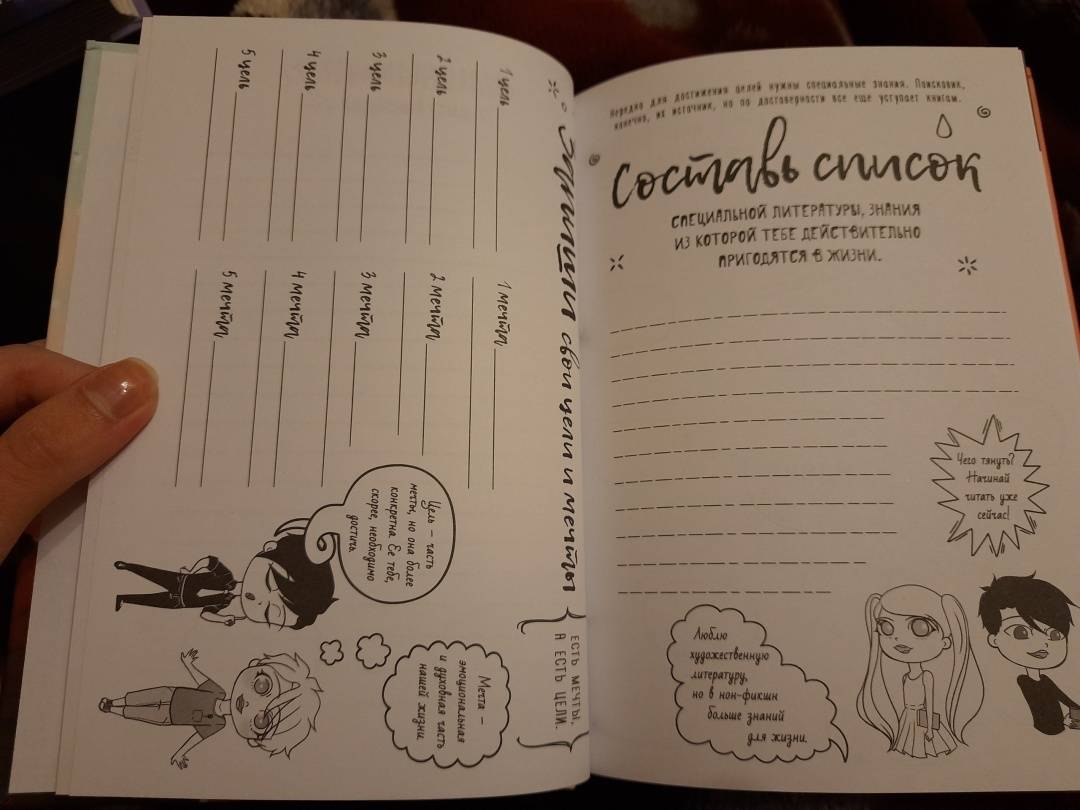 ЕСТЬ МЕЧТЫ,
А ЕСТЬ ЦЕЛИ.
Запиши свои цели и мечты
1 цель
2 цель
3 цель
4 цель
5 цель
1 мечта
2 мечта
3 мечта
4 мечта
5 мечта
Цель – часть
мечты, но она более
конкретна. Ее тебе,
скорее, необходимо
достичь.
Мечта –
эмоциональная
и духовная часть
нашей жизни.
Нередко для достижения целей нужны специальные знания. Поисковик,
конечно, их источник, но по достоверности все еще уступает книгам.
Составь список
СПЕЦИАЛЬНОЙ ЛИТЕРАТУРЫ, ЗНАНИЯ
ИЗ КОТОРОЙ ТЕБЕ ДЕЙСТВИТЕЛЬНО
ПРИГОДЯТСЯ В ЖИЗНИ.
Чего тянуть?
Начинай
читать уже
сейчас!
Люблю
художественную
литературу,
но в нон-фикшн
больше знаний
для жизни.